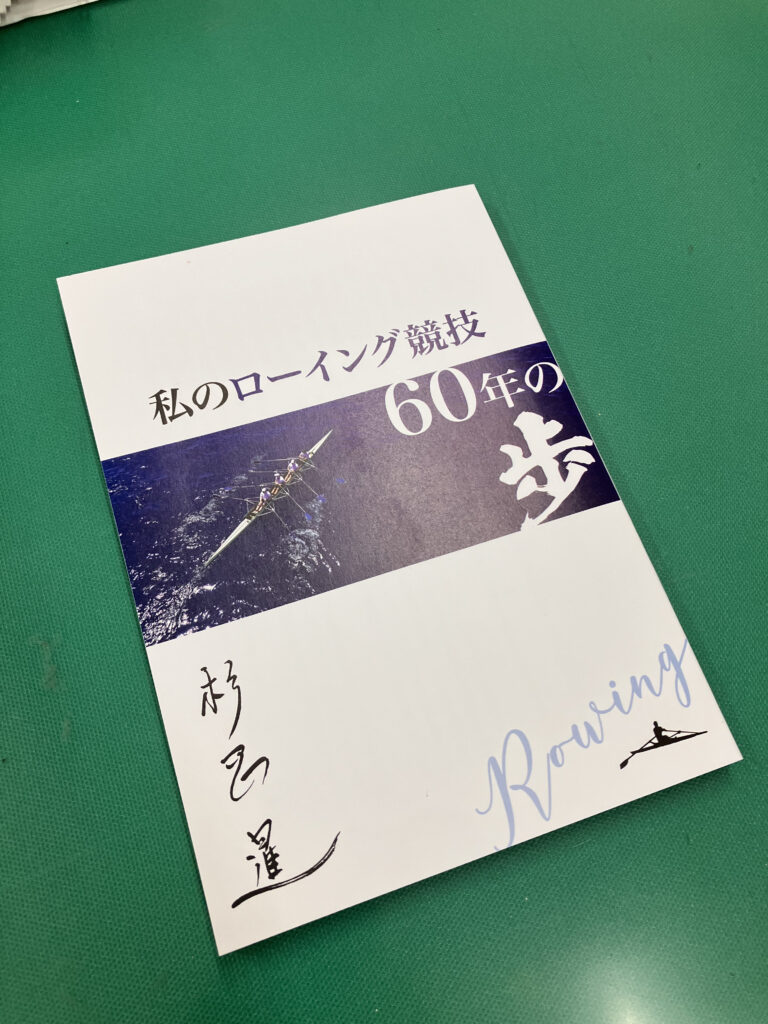 私のローイング競技
60年の
歩
杉
Rowing